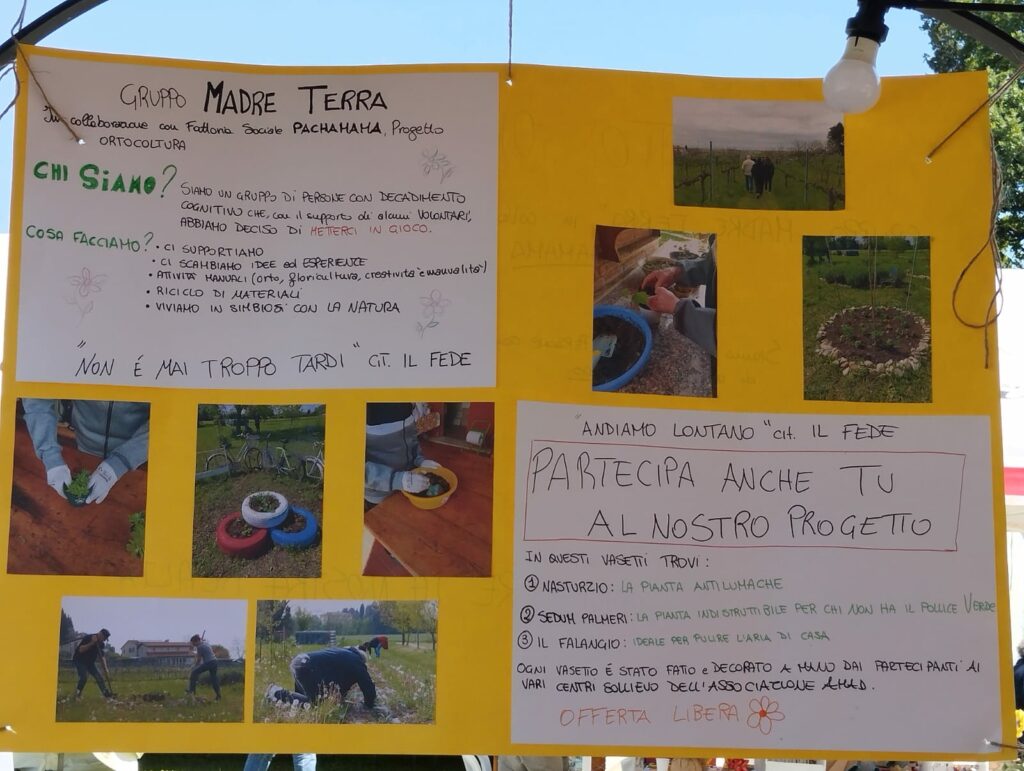 GRUPPO MADRE TERRA
In collaborazione con Fattoria Sociale PACHAMAMA, Progetto
ORTOCOLTURA
CHI SIAMO?
SIAMO UN GRUPPO DI PERSONE CON DECADIMENTO
COGNITIVO CHE, con il supporto di alcuni VOLONTARI,
ABBIAMO DECISO DI METTERCI IN GIOCO.
COSA FACCIAMO?
• CI SUPPORTIAMO
• CI SCAMBIAMO IDEE ed ESPERIENZE
• ATIVITÀ MANUALI (orto, floricultura, creatività e manualità)
• RICICLO DI MATERIALI
• VIVIAMO IN SIMBIOSI CON LA NATURA
"NON É MAI TROPPO TARDI" CIT. IL FEDE
"ANDIAMO LONTANO" cit. IL FEDE
PARTECIPA ANCHE TU
AL NOSTRO PROGETTO
IN QUESTI VASETTI TROVI:
① NASTURZIO: LA PIANTA ANTILUMACHE
② SEDUM PALMERI: LA PIANTA INDISTRUTTIBILE PER CHI NON HA IL POLLICE VERDE
③ IL FALANGIO: IDEALE PER PULIRE L'ARIA DI CASA
OGNI VASETTO É STATO FATTO e DECORATO A MANO DAI PARTECIPANTI AI
VARI CENTRI SOLLIEVO DELL'ASSOCIAZIONE AMAD.
OFFERTA LIBERA